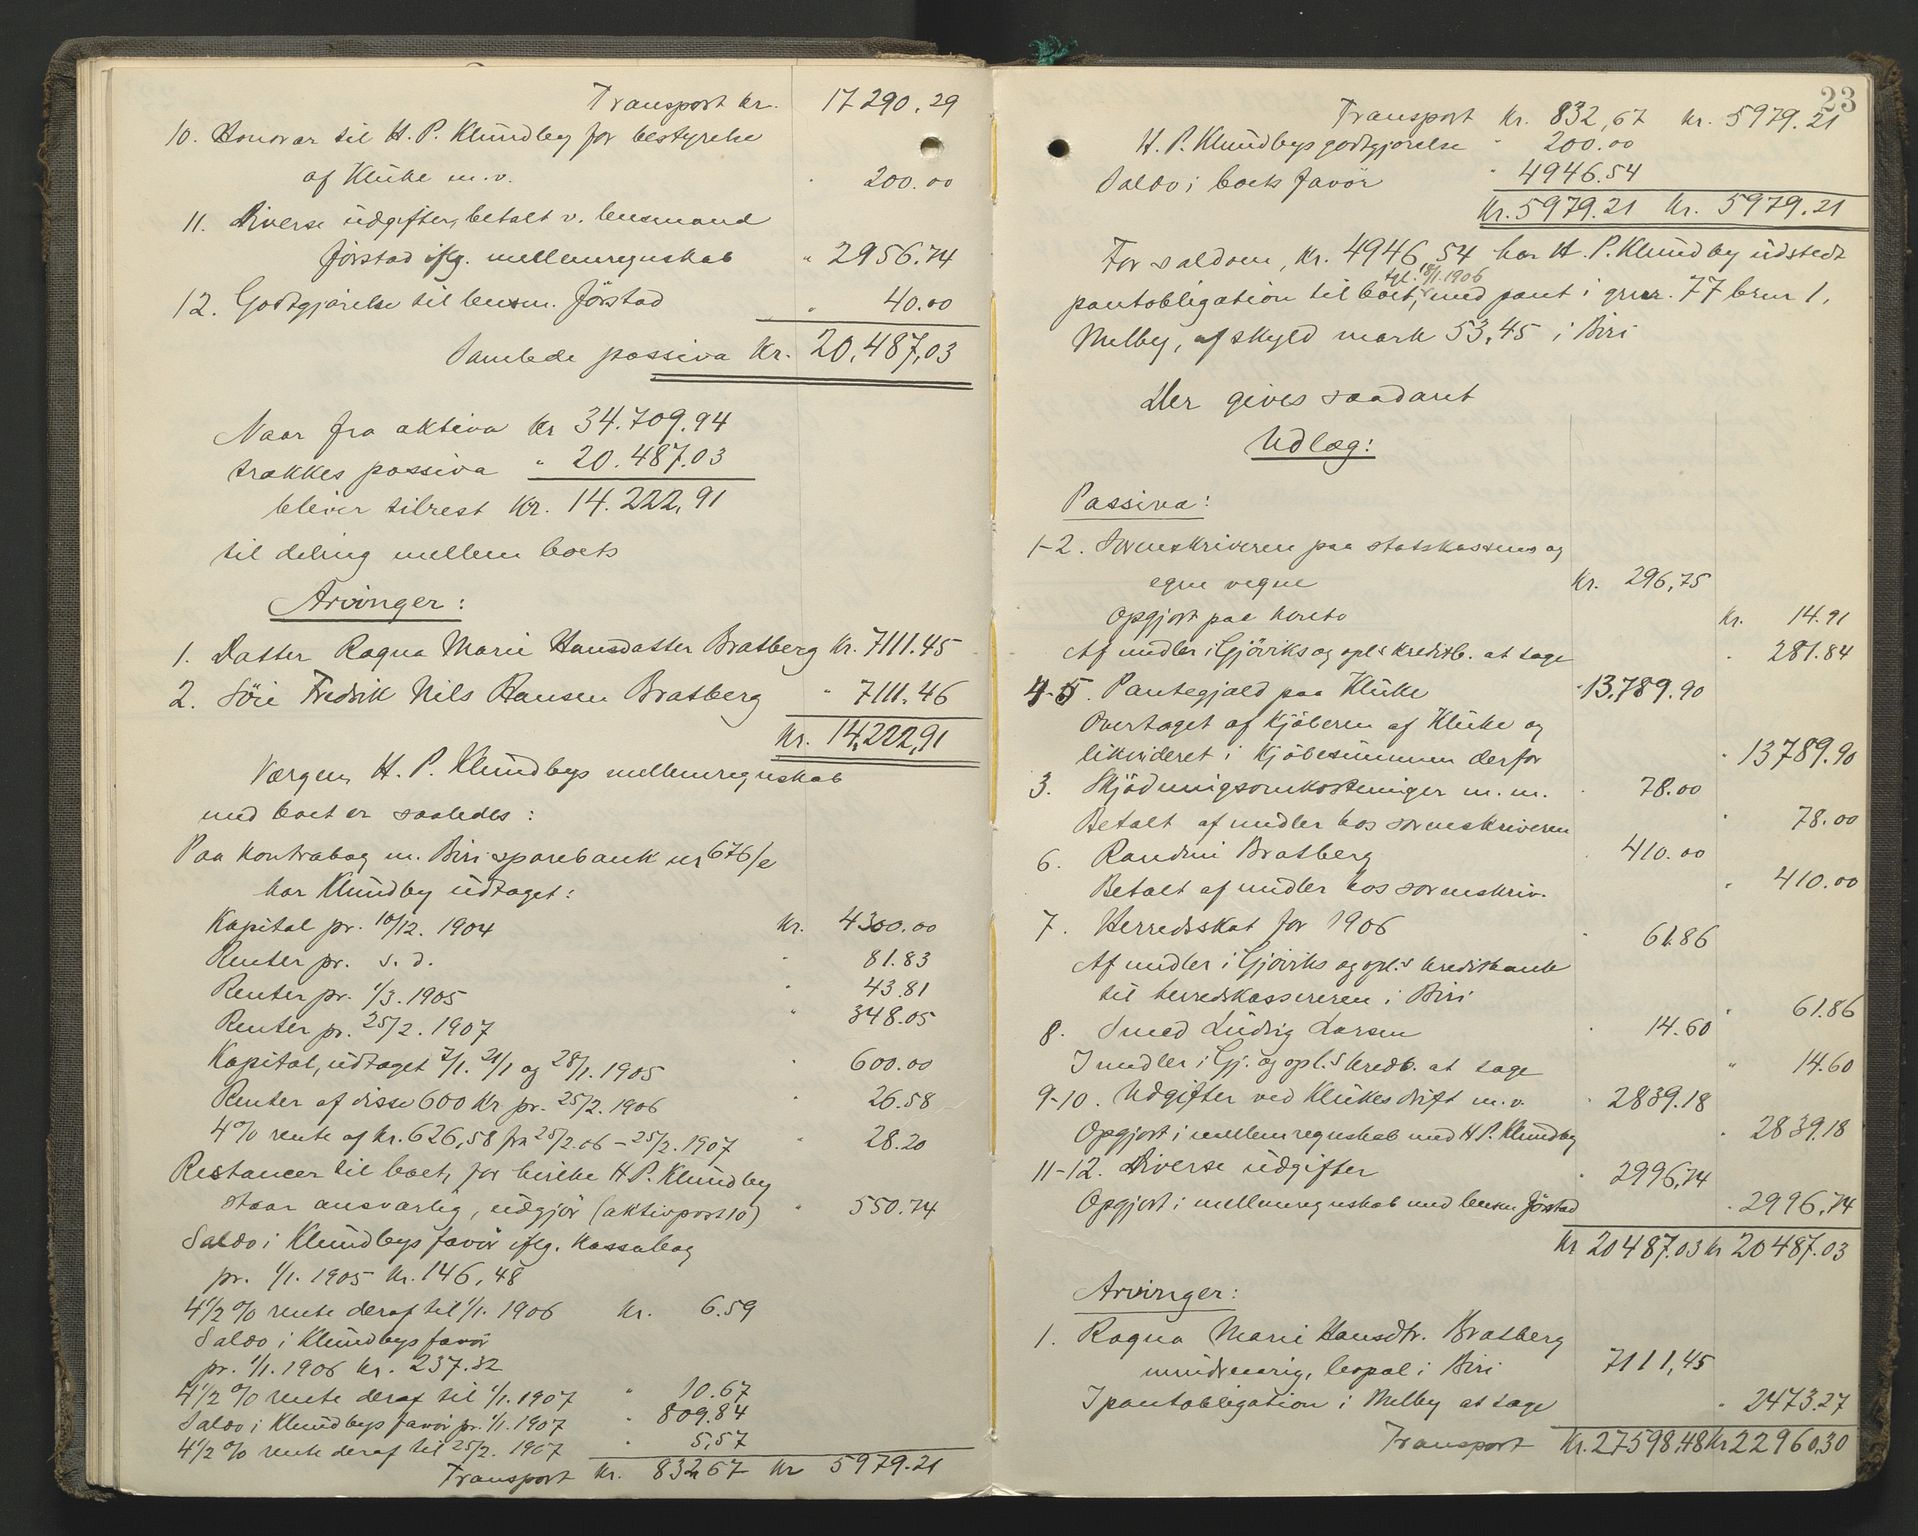 Transport kr. 17 290.29
10. Honorar til H. P. Klundby for bestyrelse
af Kluke m.v. " 200.00
11. Diverse udgifter, betalt v. lensmand
Jørstad iflg. mellemregnskab " 2956.74
12. Godtgjørelse til lensm. Jørstad " 40.00
Samlede passiva Kr. 20,487,03
Naar fra aktiva Kr 34.709.94
trækkes passiva " 20.487.03
bliver tilrest Kr. 14.222,91
til deling mellem boets
Arvinger:
1. Datter Ragna Marie Hansdatter Bratberg Kr. 7111.45
2. Søn Fredrik Nils Hansen Bratberg " 7111.46
Kr. 14,222,91
Værgen, H. P. Klundbys mellemregnskab
med boet er saaledes:
Paa Kontrabog m. Biri sparebank nr 676/e
har Klundby udtaget:
Kapital pr. 10/12. 1904 Kr. 4300.00
Renter pr. s. d. " 81.83
Renter pr. 1/3. 1905 " 43.81
Renter pr. 25/2. 1907 " 348.05
Kapital, udtaget 7/1. 21/1 og 28/1. 1905 " 600.00
Renter af disse 600 Kr pr. 25/2. 1906 " 26.58
4% rente af Kr. 626,58 fra 25/2.06 – 25/2. 1907 " 28.20
Restancer til boet, for hvilke H P. Klundby
staar ansvarlig, udgjør (aktivpost 10) " 550.74
Saldo i Klundbys favør iflg. Kassabog
pr. 1/1. 1905 Kr. 146,48
4 1/2 % rente deraf til 1/1. 1906 Kr. 6.59
Saldo i Klundbys favør
pr. 1/1. 1906 Kr. 237.32
4 1/2 % rente deraf til 1/1. 1907 " 10.67
Saldo i Klundbys favør pr. 1/1. 1907 " 809.84
4 1/2 % rente deraf til 25/2. 1907 " 5,57
Transport Kr. 832,67 Kr 5979.21
23
Transport Kr. 832,67 Kr. 5979.21
H. P. Klundbys godtgjørelse " 200.00
Saldo i boets favør " 4946.54
Kr. 5979.21 Kr. 5979.21
For saldoen, Kr. 4946,54 har H. P. Klundby udstedt
tgl. 18/1.1906
pantobligation til boet, med pant i gnr. 77 brnr 1,
Melby, af skyld mark 53,45 i Biri
Der gives saadant
Udlæg:
Passiva:
1-2. Sorenskriveren paa statskassens og
egne vegne Kr. 296,75
Opgjort paa konto Kr. 14.91
Af midler i Gjøviks og opl.s kreditb. at tage " 281.84
4-5. Pantegjæld paa Kluke " 13,789.90
Overtaget af kjøberen af Kluke og
likvideret i kjøbesummen derfor " 13789.90
3. Skjødningsomkostninger m. m. " 78.00
Betalt af midler hos sorenskriveren " 78.00
6. Randini Bratberg " 410.00
Betalt af midler hos sorenskriv. " 410.00
7. Herredsskat for 1906 " 61.86
Af midler i Gjøviks og opl.s kreditbank
til herredskassereren i Biri " 61.86
8. Smed Ludvig Larsen " 14.60
I midler i Gj. og opl.s kredb. at tage " 14.60
9-10. Udgifter ved Klukes drift m. v. " 2839.18
Opgjort i mellemregnskab med H P. Klundby " 2839.18
11-12. Diverse udgifter " 2996,74
Opgjort i mellemregnskab med lensm Jørstad " 2996,74
Kr 20487.03 Kr 20487.03
Arvinger:
1. Ragna Marie Hansdtr. Bratberg
mindreaarig, bopæl i Biri 7111,45
I pantobligation i Melby at tage " 2473.27
Transport Kr. 27598,48 Kr 22960,30